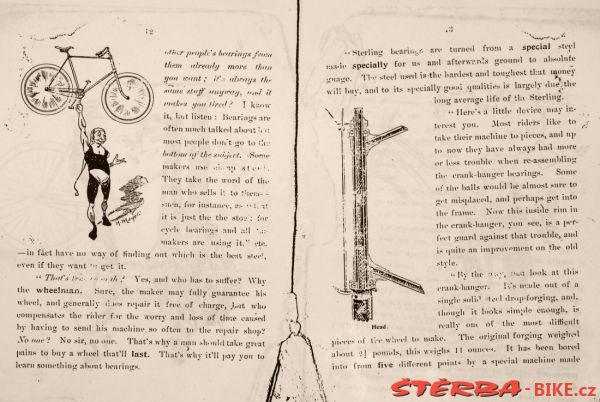 12
other people's bearings from
them already more than
you want; it's always the
same stuff anyway, and it
makes you tired? I know
it, but listen: Bearings are
often much talked about but
most people don't go to the
bottom of the subject. Some
makers use cheap steel.
They take the word of the
man who sells it to them
men, for instance, as
it is just the the stock for
cycle bearings and all the
makers are using it," etc.
—in fact have no way of finding out which is the best steel,
even if they want to get it.
"That's Yes, and who has to suffer? Why
the wheelman. Sure, the maker may fully guarantee his
wheel, and generally does repair it free of charge, but who
compensates the rider for the worry and loss of time caused
by having to send his machine so often to the repair shop?
No one? No sir, no one. That's why a man should take great
pains to buy a wheel that'll last. That's why it'll pay you to
learn something about bearings.
13
"Sterling bearings are turned from a special steel
made specially for us and afterwards ground to absolute
guage. The steel used is the hardest and toughest that money
will buy, and to its specially good qualities is largely due the
long average life of the Sterling.
"Here's a little device may in-
terest you. Most riders like to
take their machine to pieces, and up
to now they have always had more
or less trouble when re-assembling
the crank-hanger bearings. Some
of the balls would be almost sure to
get misplaced, and perhaps get into
the frame. Now this inside rim in
the crank-hanger, you see, is a per-
fect guard against that trouble, and
is quite an improvement on the old
style.
"By the way, just look at this
crank-hanger. It's made out of a
single solid steel drop-forging, and,
though it looks simple enough, is
really one of the most difficult
Head.
pieces of the wheel to make. The original forging weighed
about 2½ pounds, this weighs 11 ounces. It has been bored
into from five different points by a special machine made
STERBA-BIKE.cz